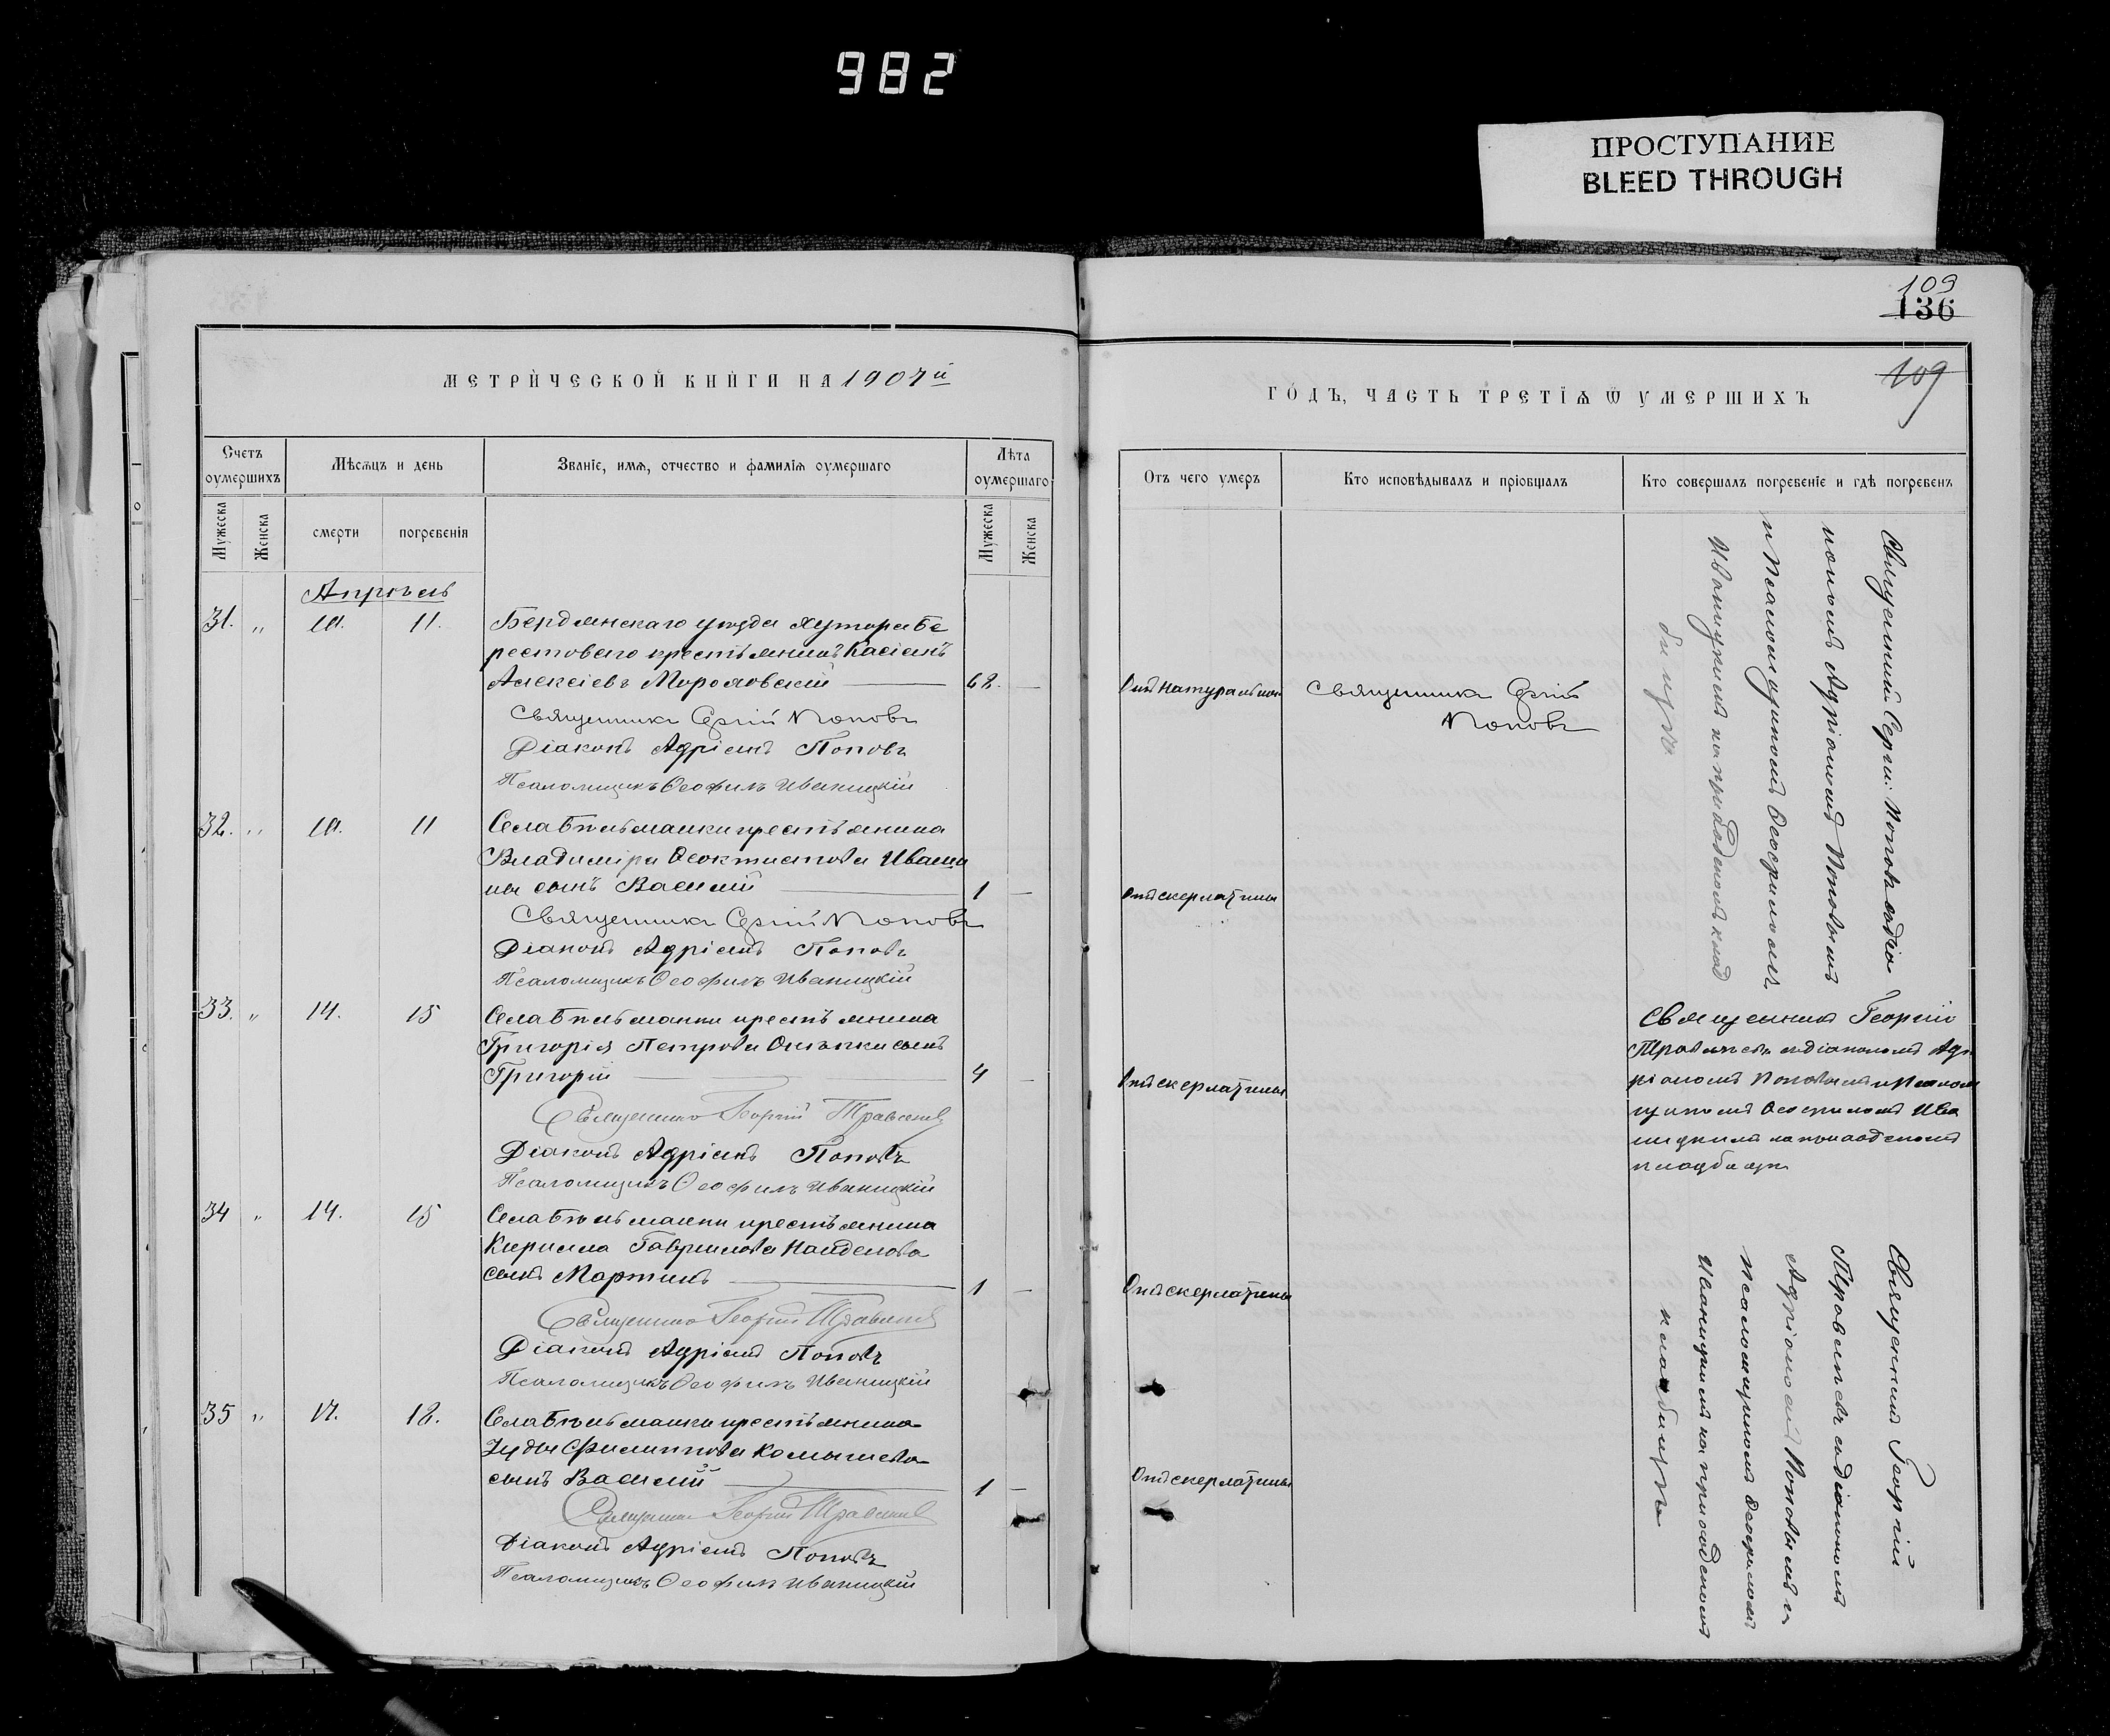 982
ПРОСТУПАНИЕ
BLEED THROUGH
109
136
109
МЕТРИЧЕСКОЙ КНИГИ НА 1907й
ГОДЪ, ЧАСТЬ ТРЕТІѦ Ѿ УМЕРШИХЪ
Счетъ оумершихъ
Мѣсѧцъ и день
Званіе, имѧ, отчество и фамиліѧ оумершаго
Лѣта оумершаго
Отъ чего умеръ
Кто исповѣдывалъ и пріобщалъ
Кто совершалъ погребеніе и гдѣ погребенъ
Мужеска
Женска
смерти
погребенія
Мужеска
Женска
Апрѣль
31. " 10. 11.
Бердянскаго уѣзда хутора Бе
рестоваго крестьянинъ Касіянъ
Алексіевъ 68.
Священникъ Сергій Поповъ
Діаконъ Адріанъ Поповъ
Псаломщикъ Ѳеофилъ Иваницкій
Отъ натуральной
Священникъ Сергій
Поповъ
Священникъ Сергій Поповъ съ діа
кономъ Адріаномъ Поповымъ
и Псаломщикомъ Ѳеофиломъ
Иваницкимъ на приходскомъ клад
бищѣ
32. " 10. 11
Села Бѣльманки крестьянина
Владиміра Ѳеоктистова Иваши
ны сынъ Василій 1
Священникъ Сергій Поповъ
Діаконъ Адріанъ Поповъ
Псаломщикъ Ѳеофилъ Иваницкій
Отъ скерлатины
33. " 14. 15
Села Бѣльманки крестьянина
Григорія Петрова сынъ
Григорій 4
Священникъ Георгій
Діаконъ Адріанъ Поповъ
Псаломщикъ Ѳеофилъ Иваницкій
Отъ скерлатины
Священникъ Георгій
съ діакономъ Ад
ріаномъ Поповымъ и Псалом
щикомъ Ѳеофиломъ Ива
ницкимъ на приходскомъ
кладбищѣ
34 " 14. 15
Села Бѣльманки крестьянина
Кирилла Гаврилова Найденова
сынъ Мартинъ 1
Священникъ Георгій
Діаконъ Адріанъ Поповъ
Псаломщикъ Ѳеофилъ Иваницкій
Отъ скерлатины
Священникъ Георгій
съ діакономъ
Адріаномъ Поповымъ и
Псаломщикомъ Ѳеофиломъ
Иваницкимъ на приходскомъ
кладбищѣ
35 " 17. 18.
Села Бѣльманки крестьянина
Филиппова
сынъ Василій 1
Священникъ Георгій
Діаконъ Адріанъ Поповъ
Псаломщикъ Ѳеофилъ Иваницкій
Отъ скерлатины